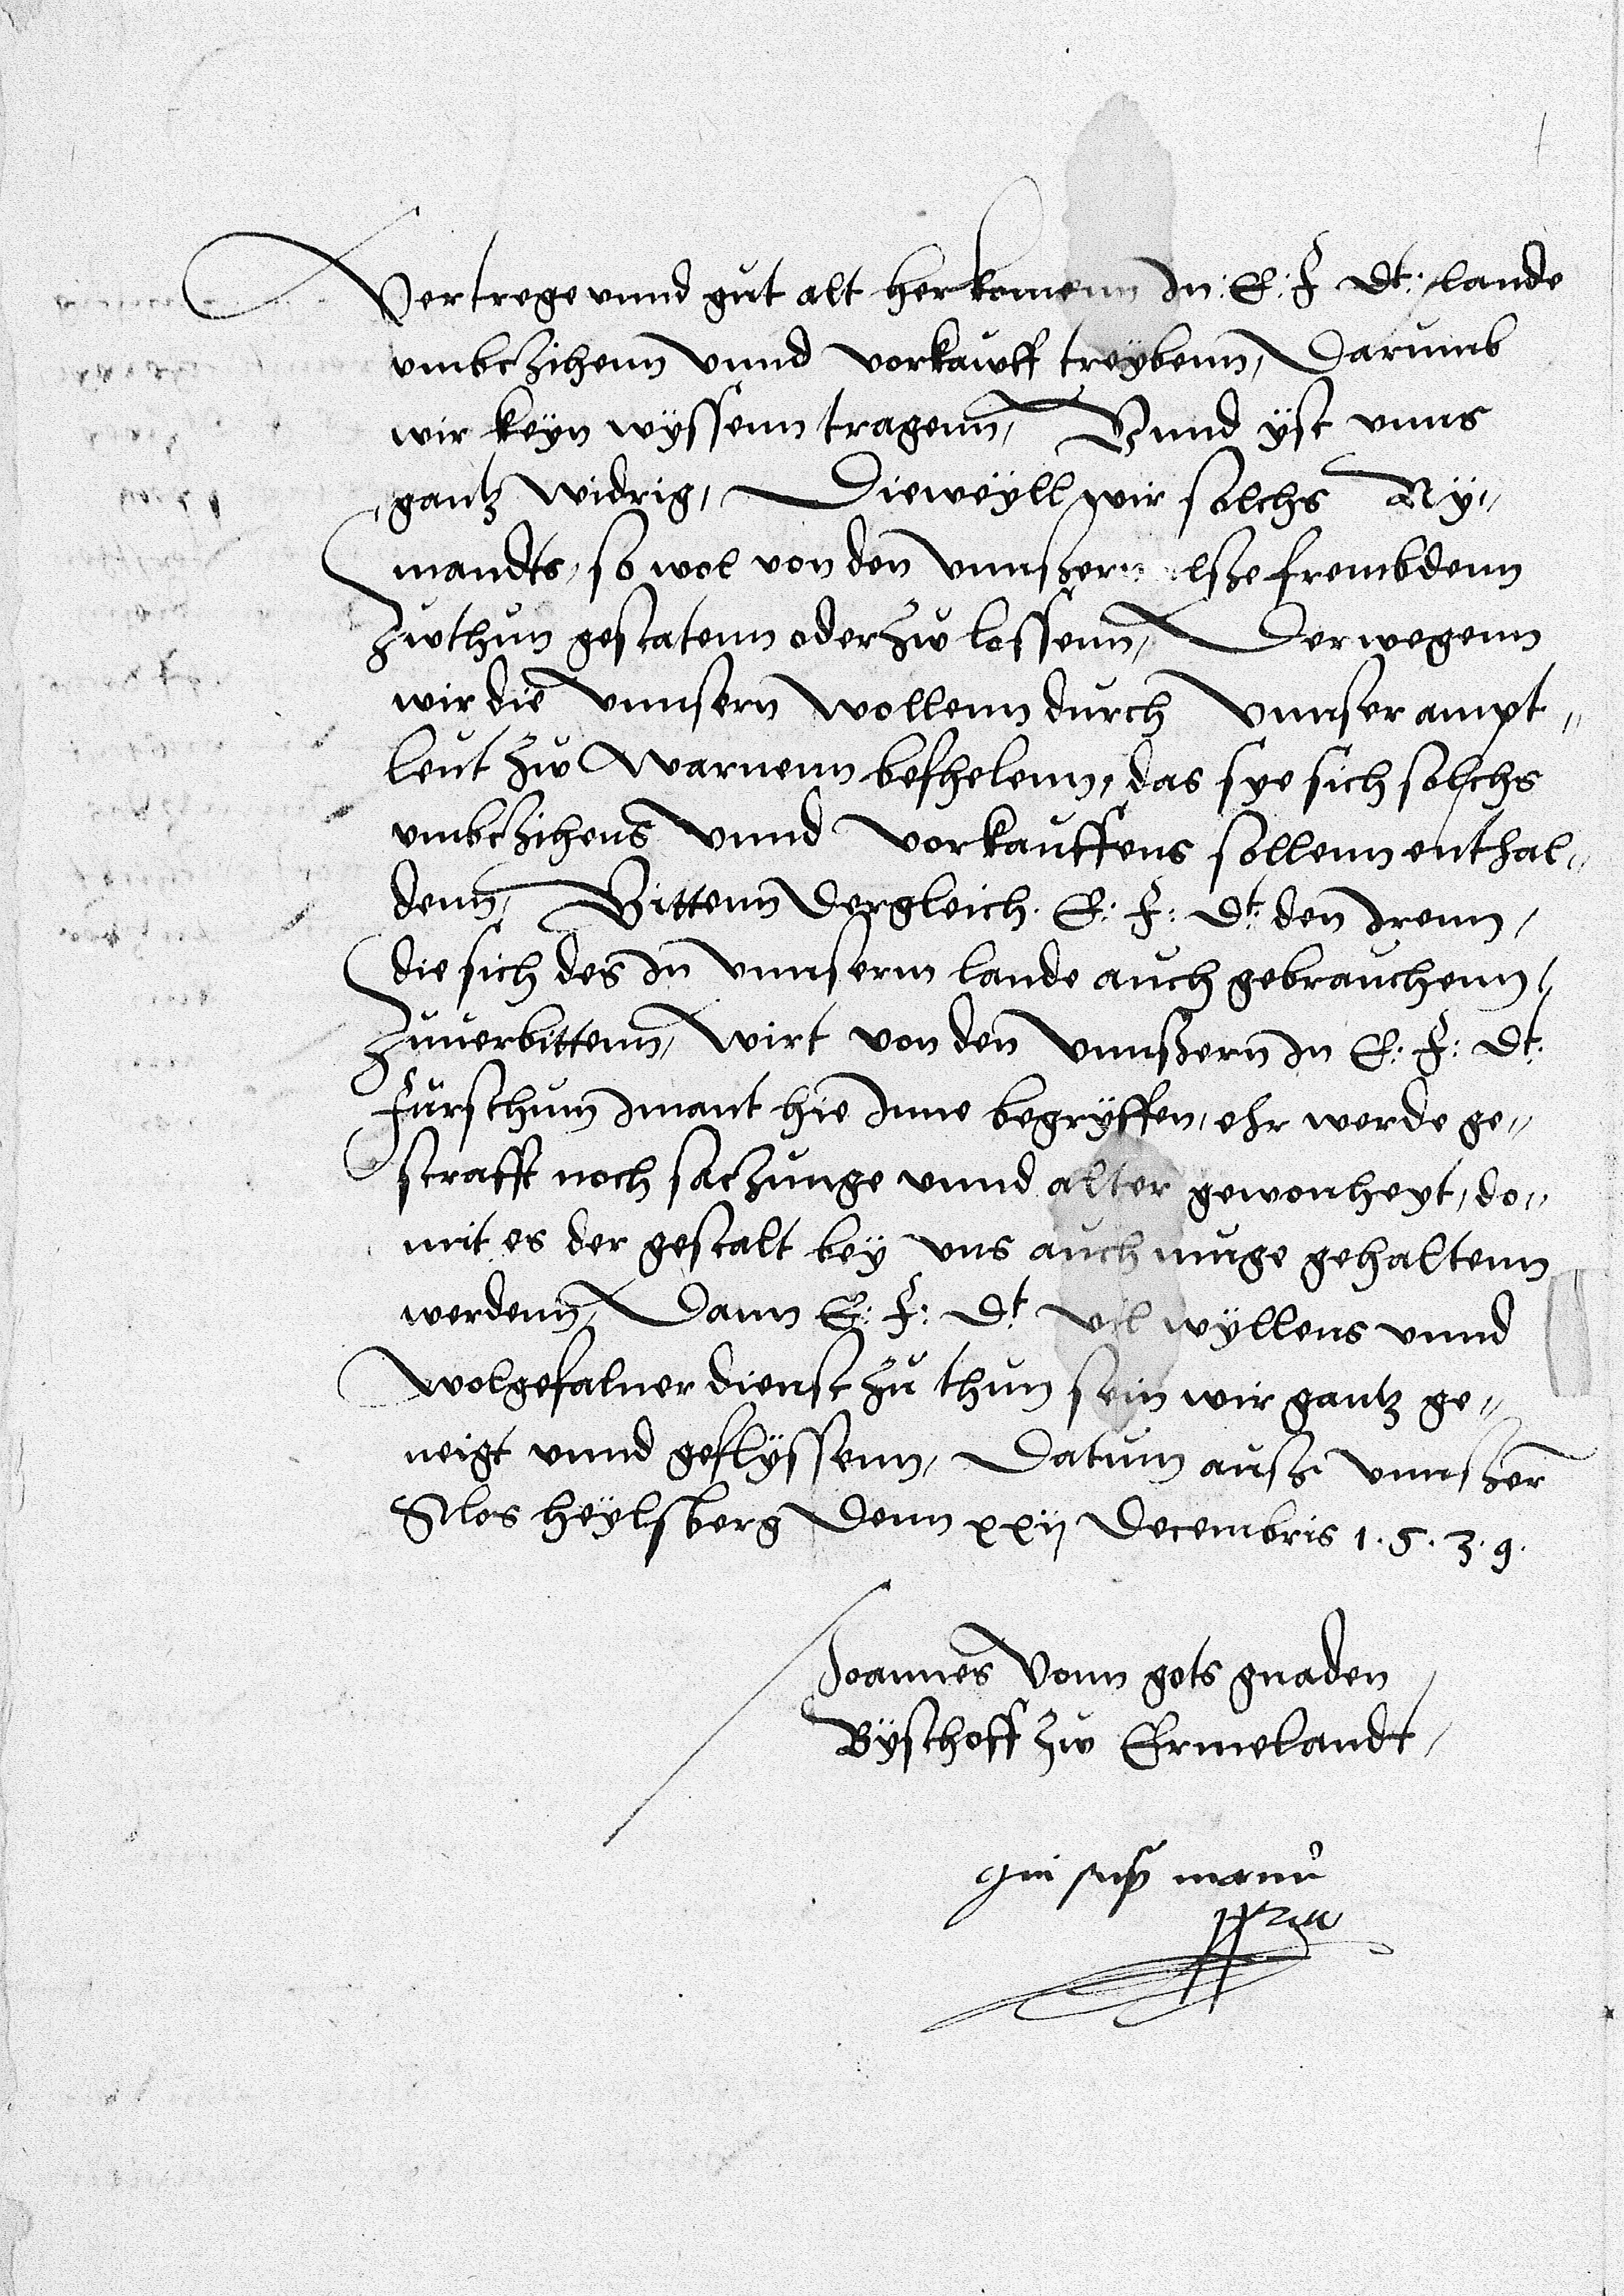 Vertrege unnd gut alt herkomenn In: E: F Dt: lande
umbczihenn unnd vorkauff treybenn, Darumb
wir keyn wyssenn tragenn, Unnd yst unns
gantz widrig, Dieweyll wir solchs Ny„
mandts, so wol von den unnszern alsze frembdenn
zwthun gestatenn oder zw lossenn, Derwegenn
wir die unnsern wollenn durch unnser ampt„
leut zw warnenn befhelenn, das sye sich solchs
umbczihens unnd vorkauffens sollenn enthal„
denn, Bittenn dergleich. E: F: Dt: den Irenn,
die sich des In unnserm lande auch gebrauchenn,
zuuerbittenn, Wirt von den unnszern In E: F: Dt:
furschum Imant hie Inne begryffen, ehr werde ge„
strafft noch saczunge unnd alter gewonheyt, do„
mit es der gestalt bey uns auch muge gehaltenn
werdenn, Dann E: F: Dt vil wyllens unnd
wolgefalner dienst zu thun sein wir gantz ge„
neigt unnd geflyssenn, Datum ausz unnszer
Slos heylsberg Denn xxij Decembris 1.5.3.9.
Joannes Vonn gots gnaden
Byschoff zw Ermelandt,
manu